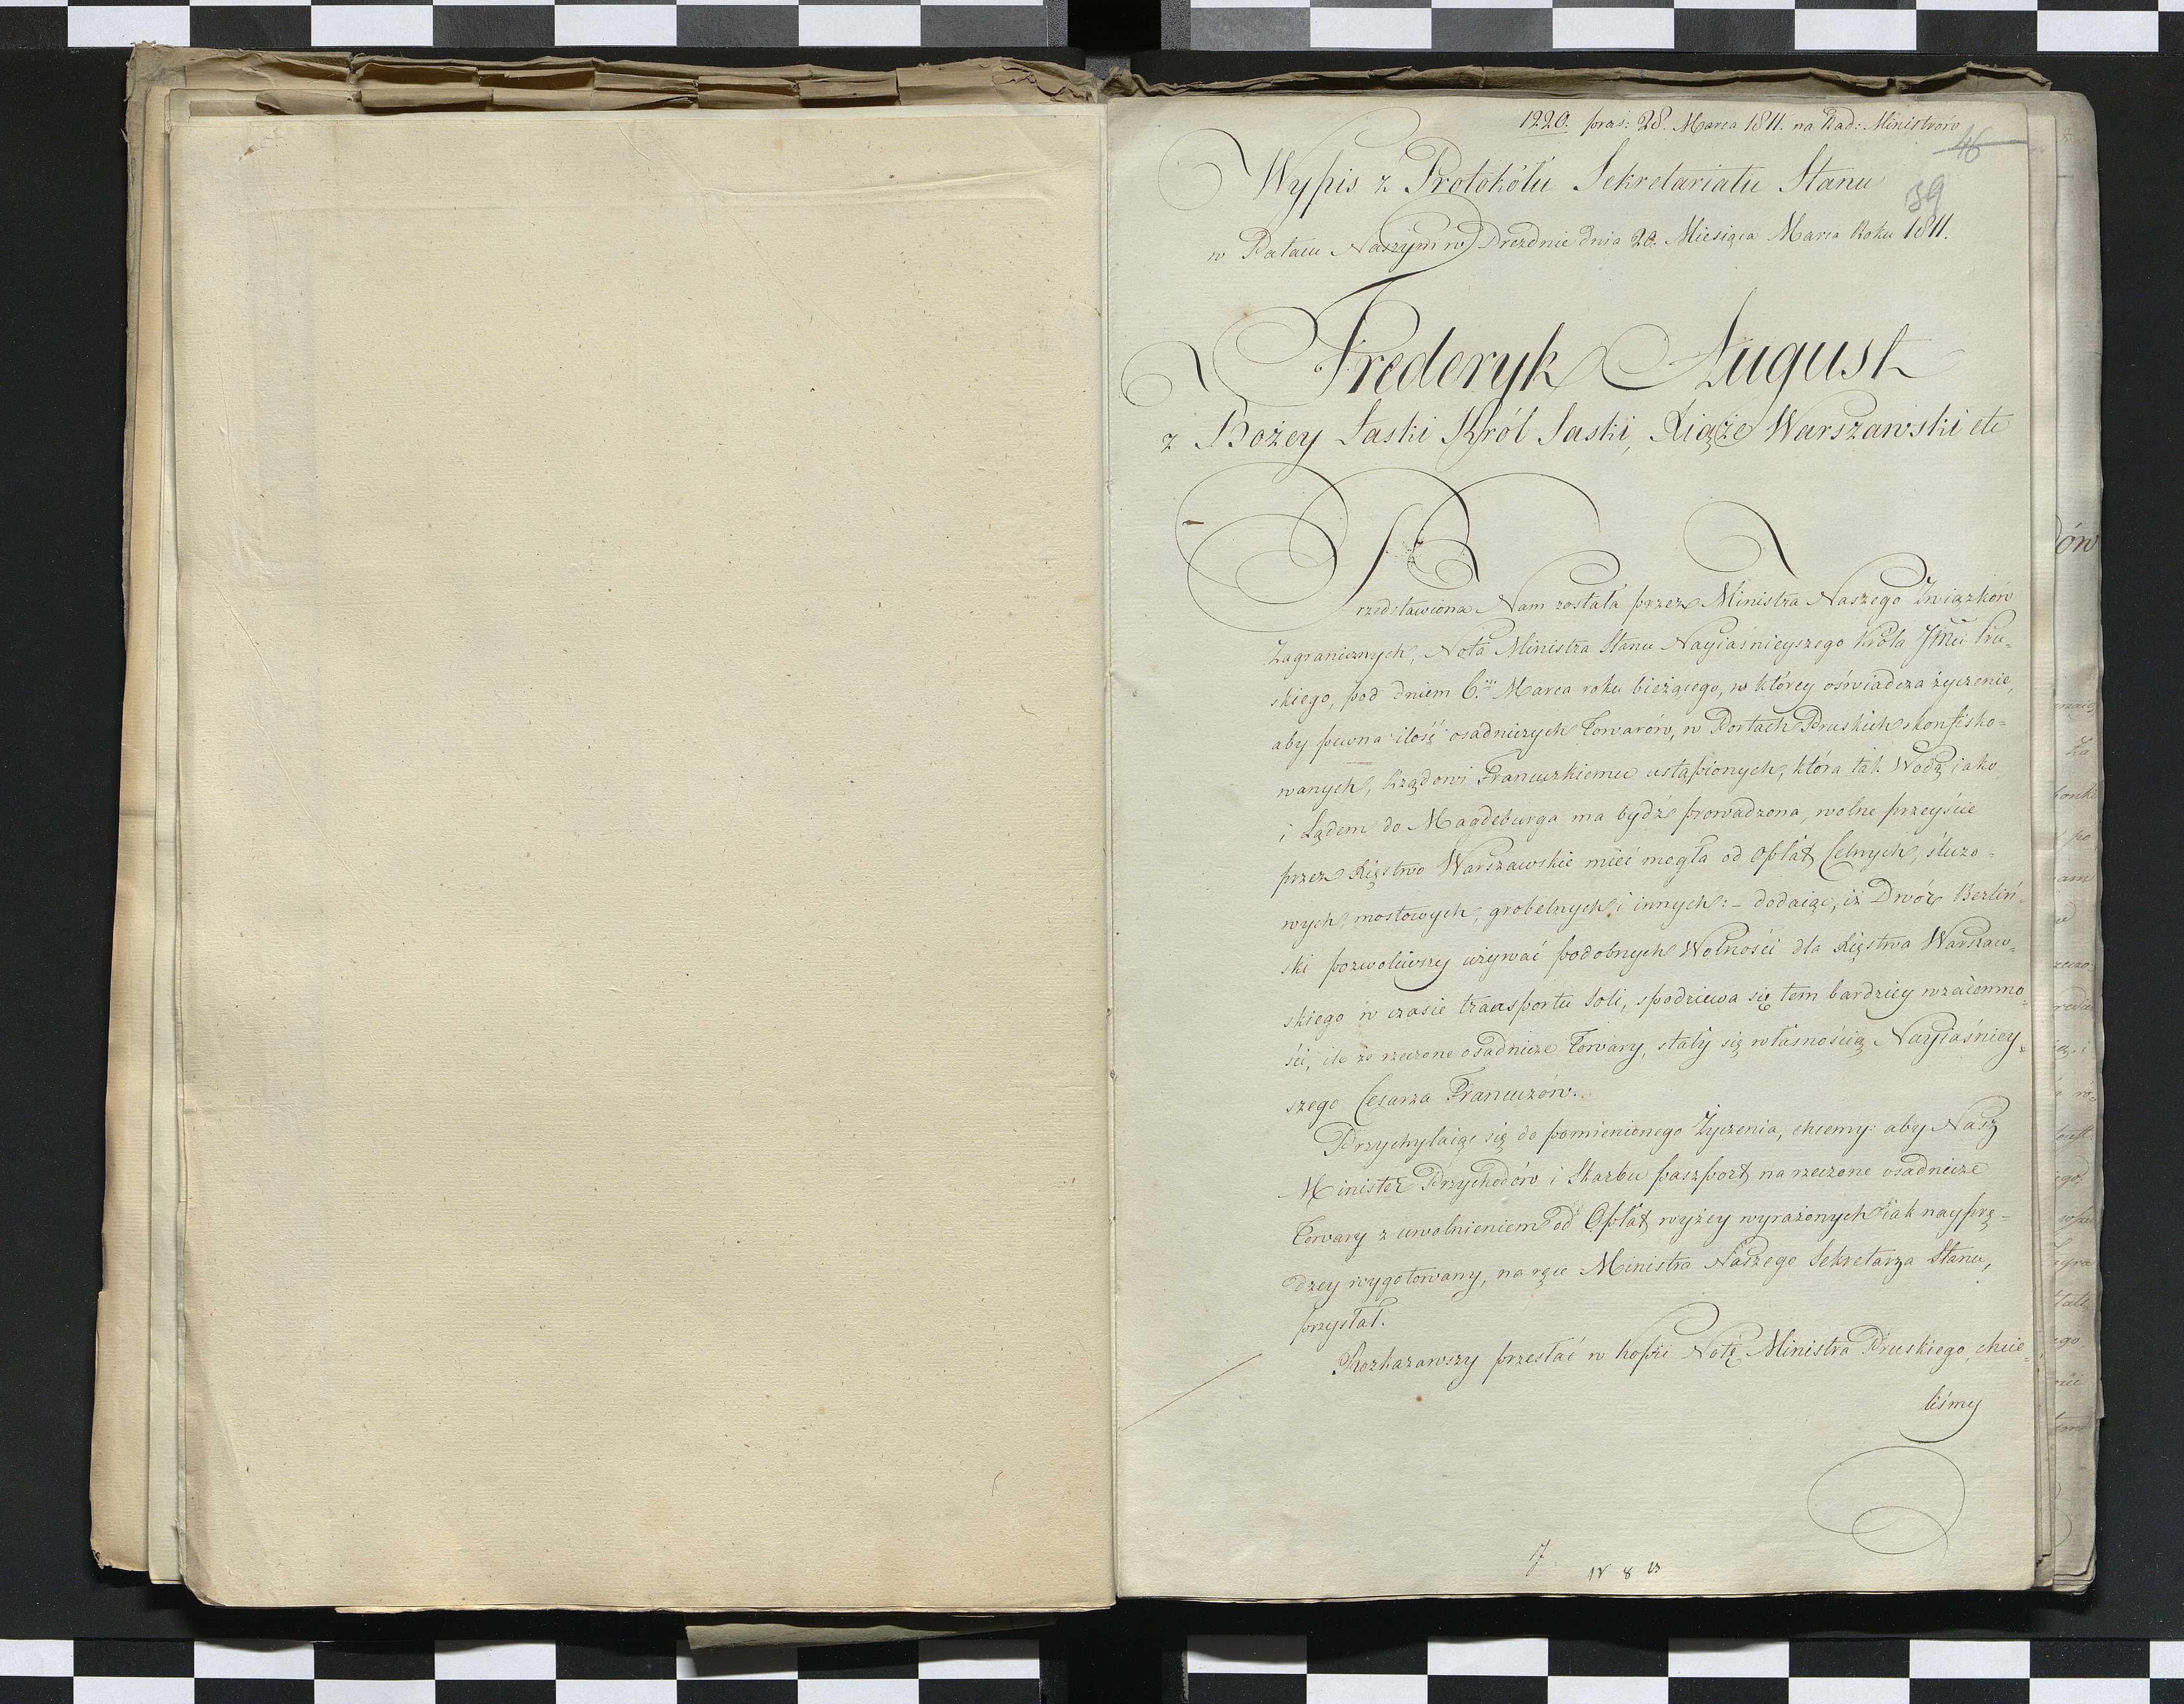 1220. præs: 28. Marca 1811. na Rad: Ministrów
46
Wypis z Protokółu Sekretariatu Stanu
39
w Pałacu Naszym w Dreźdnie dnia 20. Miesiąca Marca Roku 1811.
Frederyk August
z Bożey Łaski Król Saski, Xiąże Warszawski etc
Przedstawiona Nam została przez Ministra Naszego Związków
Zagranicznych, Nota Ministra Stanu Nayiaśnieyszego Króla Jmci Pru-
skiego, pod dniem 6. Marca roku bieżącego, w którey oświadcza życzenie,
aby pewna ilość osadniczych Towarów, w Portach Pruskich skonfisko-
wanych, Rządowi Francuzkiemu ustąpionych, która tak Wodą iako
i Lądem do Magdeburga ma bydź prowadzona, wolne przeyście
przez Xięstwo Warszawskie mieć mogła od Opłat Celnych, śluzo-
wych mostowych, grobelnych i innych: - dodaiąc, iż Dwór Berliń-
ski pozwoliwszy używać podobnych Wolności dla Xięstwa Warszaw-
skiego w czasie transportu Soli, spodziewa się tem bardziey wzaiemno-
ści, ile że rzeczone osadnicze Towary, stały się własnością Nayiaśniey-
szego Cesarza Francuzów.
Przychylaiąc się do pomienionego Życzenia, chcemy: aby Nasz
Minister Przychodów i Skarbu paszport na rzeczone osadnicze
Towary z uwolnieniem od Opłat wyżey wyrażonych iak nayprę-
dzey wygotowany, na ręce Ministra Naszego Sekretarza Stanu,
przysłał.
Rozkazawszy przesłać w kopii Notę Ministra Pruskiego, chcie-
liśmy